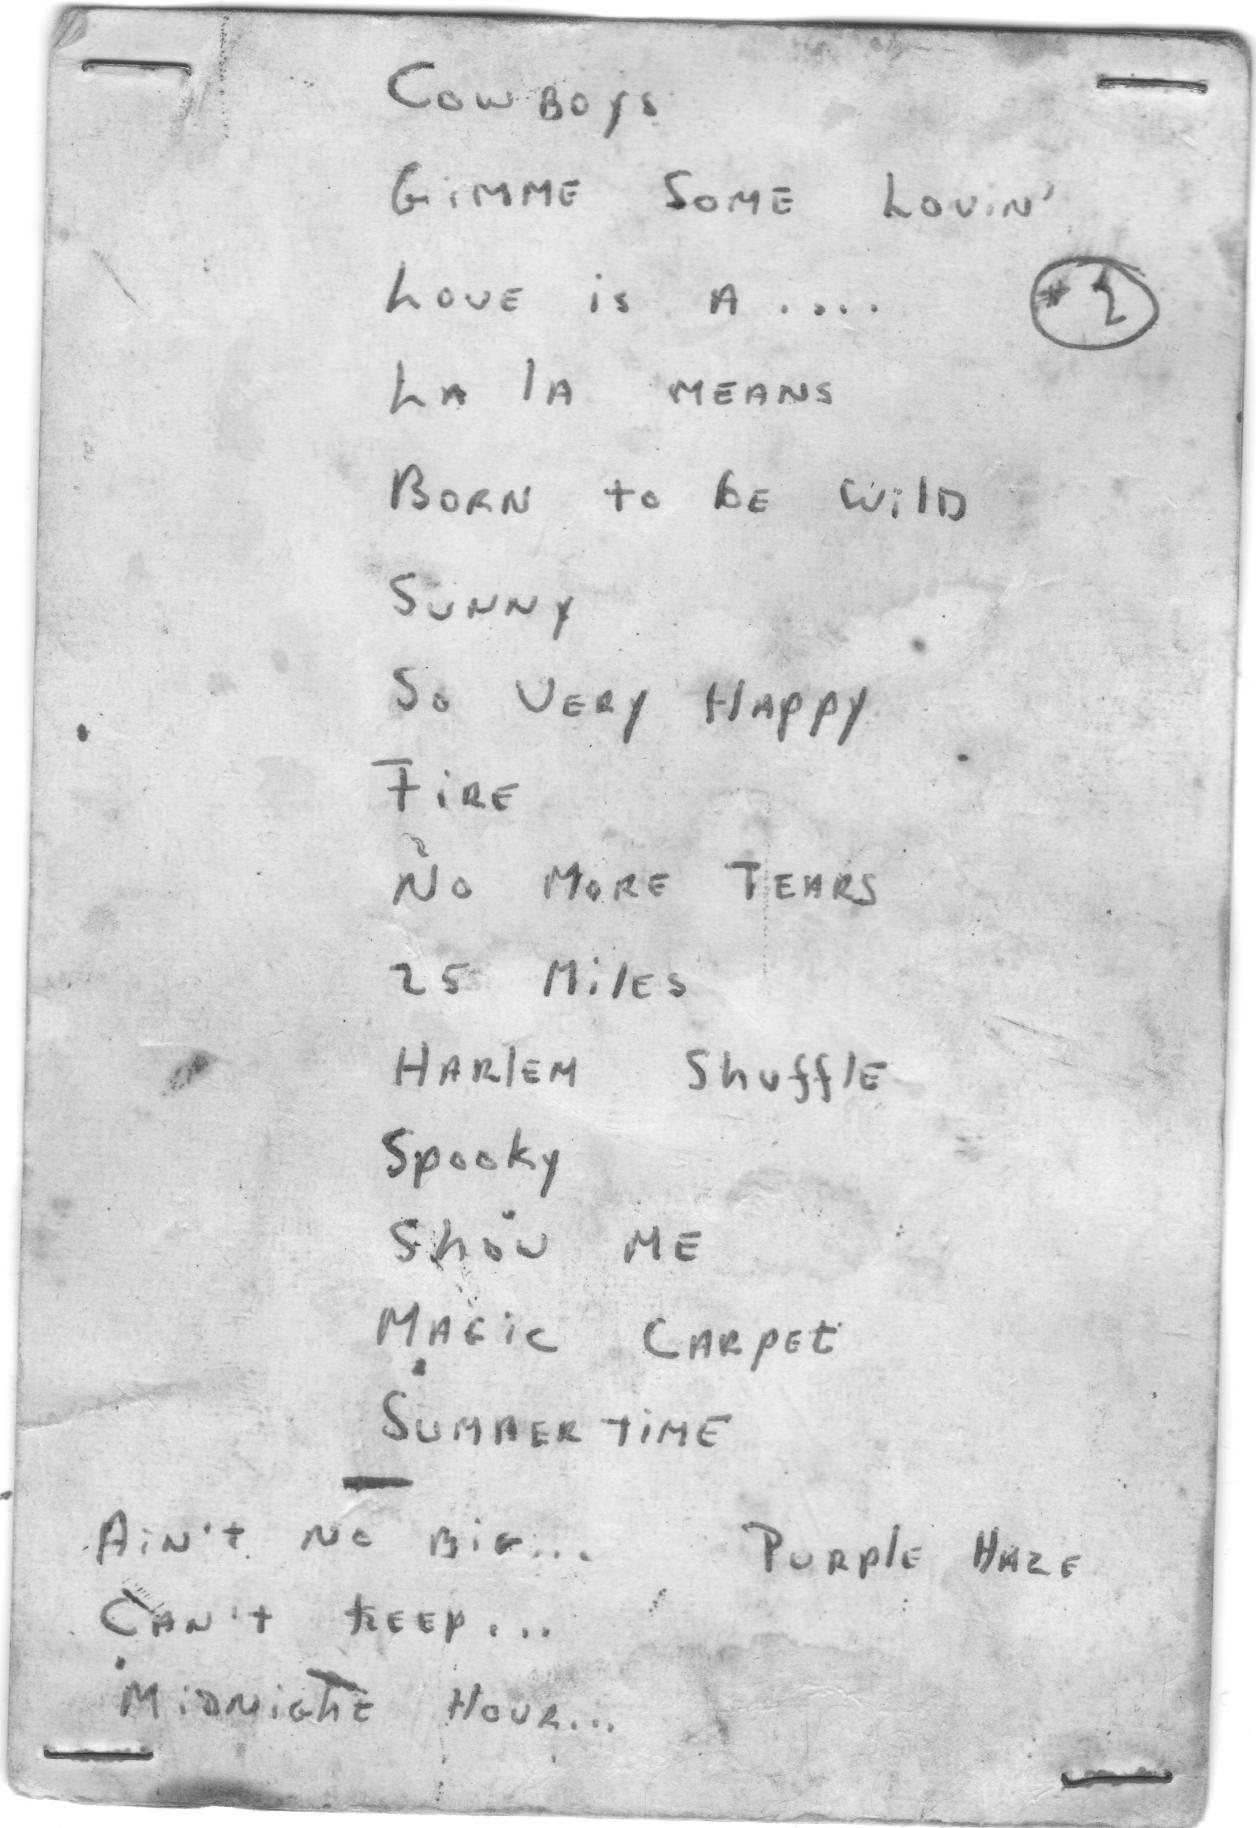 Cowboys
GiMME SOME Lovin'
Love is A ....
#2
LA lA MEANS
BORN to bE WilD
SUNNY
So VERY HAPPY
FiRE
No MORE TEARS
25 MilES
HARlEM ShufflE
Spooky
Show ME
MAGiC CARpEt
SUMMERTiME
AiN't No BiG... PURplE HAZE
CAN't KEEp...
MiDNiGht HOUR...